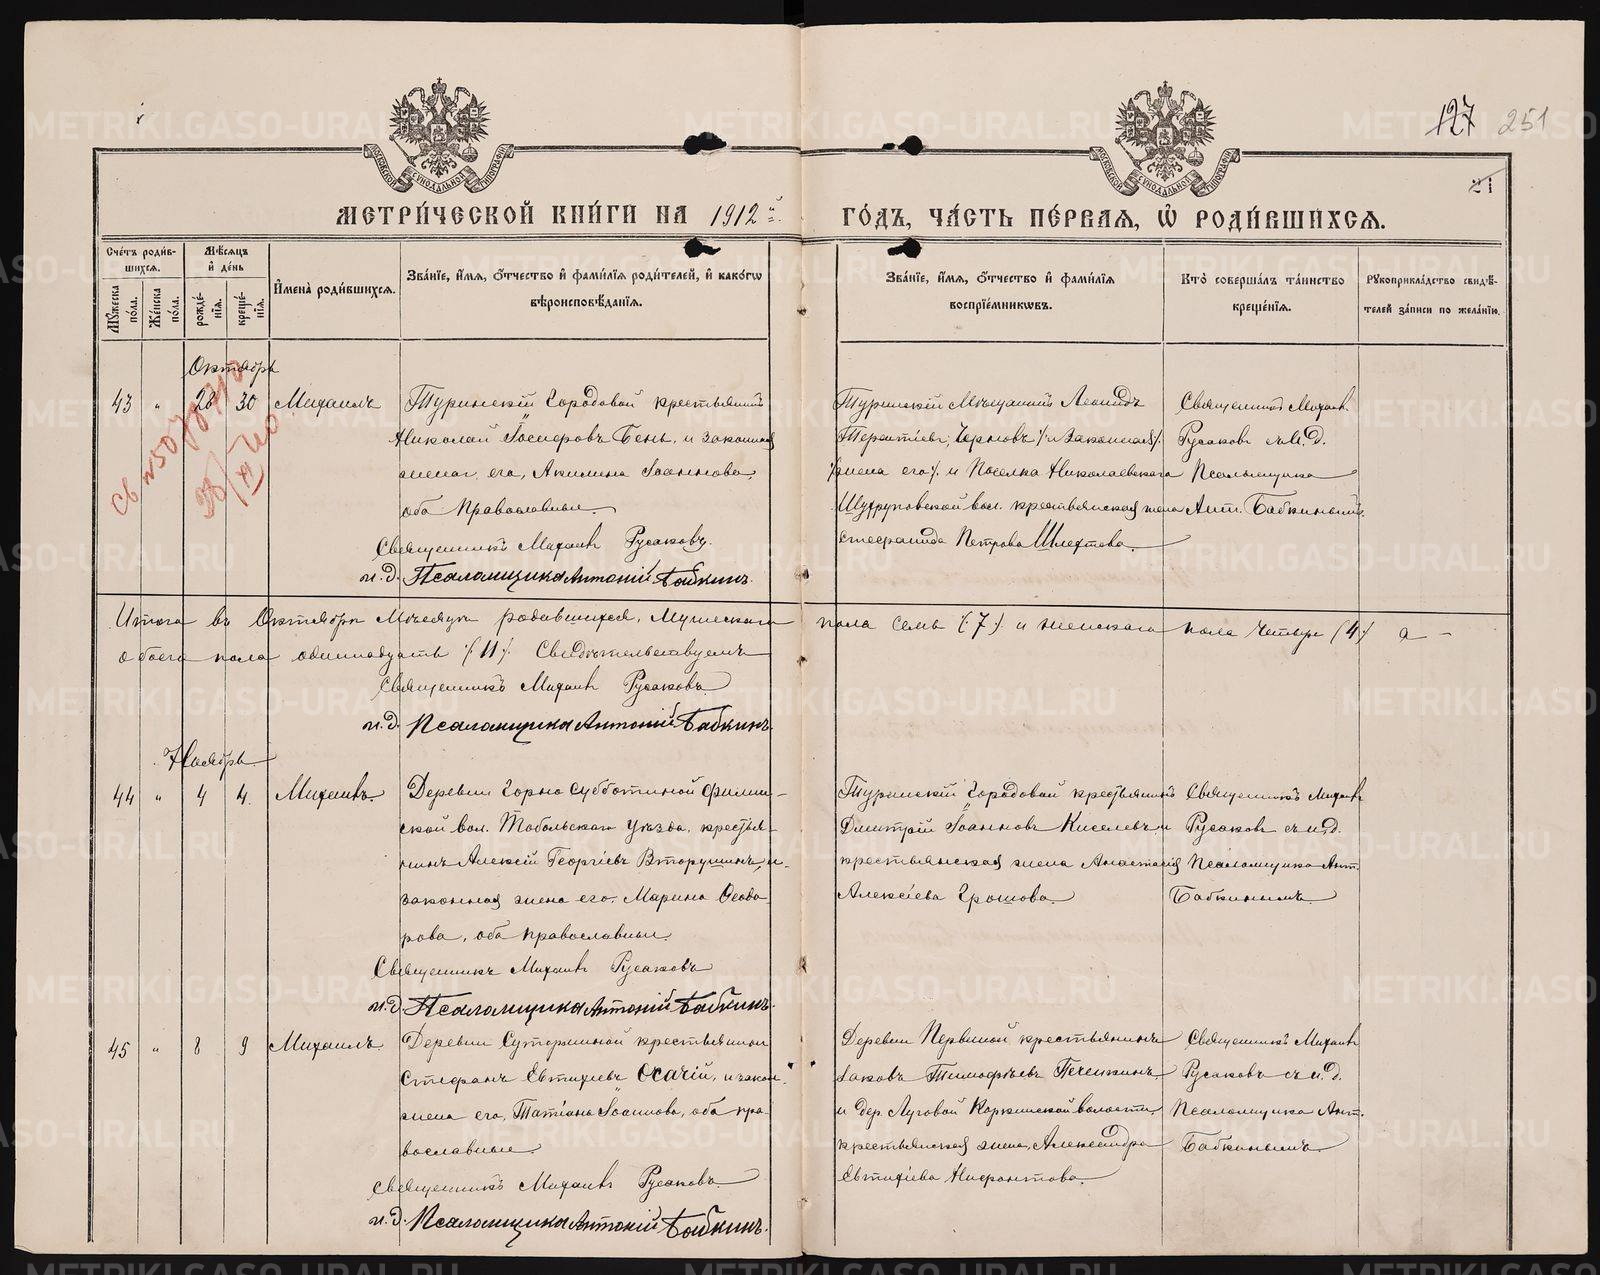 127 251
21
МЕТРИ́ЧЕСКОЙ КНИ́ГИ НА 1912 й
ГО́ДЪ, ЧА́СТЬ ПЕ́РВАЯ, Ѽ РОДИ́ВШИХСЯ.
Сче́тъ роди́в-
шихся.
Мѣ́сяцъ
и҆ де́нь
Мꙋ́жеска по́ла.
Же́нска по́ла.
рожде́-
нїѧ.
креще́-
нїѧ.
И҆мена̀ роди́вшихся.
Зва́нїе, и҆́мя, ѻ҆́тчество и҆ фами́лїя роди́телей, и҆ како́гѡ
вѣроисповѣ́данїя.
Зва́нїе, и҆́мя, ѻ҆́тчество и҆ фами́лїя
воспрїе́мникѡвъ.
Кто̀ соверша́лъ та́инство
креще́нїя.
Рꙋкоприкла́дство свидѣ́-
телей за́писи по жела́нїю.
Октябрь
43 " 28 30 Михаилъ
Туринскій Городовой крестьянинъ
Николай Іосифовъ Бень, и законная
жена его, Акилина Іоаннова,
оба Православные.
Священникъ Михаилъ Русаковъ.
и. д. Псаломщика Антоній Бабкинъ.
Туринскій Мѣщанинъ Леонидъ
Терентіевъ Черновъ /: и Законная :/
/: жена его :/ и Поселка Николаевскаго
вол. крестьянская жена
Петрова
Священникъ Михаилъ
Русаковъ съ и. д.
Псаломщика
Ант. Бабкинымъ.
Св №
Итого въ Октябрѣ Мѣсяцѣ родившихся, Мужескаго пола семь /:7:/ и женскаго пола четыре /:4:/ а –
обоего пола одиннадцать /:11:/. Свидѣтельствуемъ
Священникъ Михаилъ Русаковъ
и. д. Псаломщика Антоній Бабкинъ.
Ноябрь
44 " 4 4. Михаилъ
Деревни Горно Субботиной Филин-
ской вол. Тобольскаго Уѣзда, крестья-
нинъ Алексій Георгіевъ Вторушинъ, и
законная жена его. Марина Ѳеодо-
рова, оба православные.
Священникъ Михаилъ Русаковъ
и. д. Псаломщика Антоній Бабкинъ.
Туринскій Городовой крестьянинъ
Дмитрій Іоанновъ Киселевъ, и
крестьянская жена Анастасія
Алексіева Грошова.
Священникъ Михаилъ
Русаковъ съ и. д.
Псаломщика Ант.
Бабкинымъ.
45 " 8 9 Михаилъ
Деревни Суториной крестьянинъ
Стефанъ Евтихіевъ Осачій, и закон.
жена его, Татіана Іоаннова, оба пра-
вославные.
Священникъ Михаилъ Русаковъ
и. д. Псаломщика Антоній Бабкинъ.
Деревни Первиной крестьянинъ
Іаковъ Тимофѣевъ Печенкинъ,
и дер. Луговой Коркинской волости,
крестьянская жена, Александра
Евтихіева Нифонтова.
Священникъ Михаилъ
Русаковъ съ и. д.
Псаломщика Ант.
Бабкинымъ.
METRIKI.GASO-URAL.RU